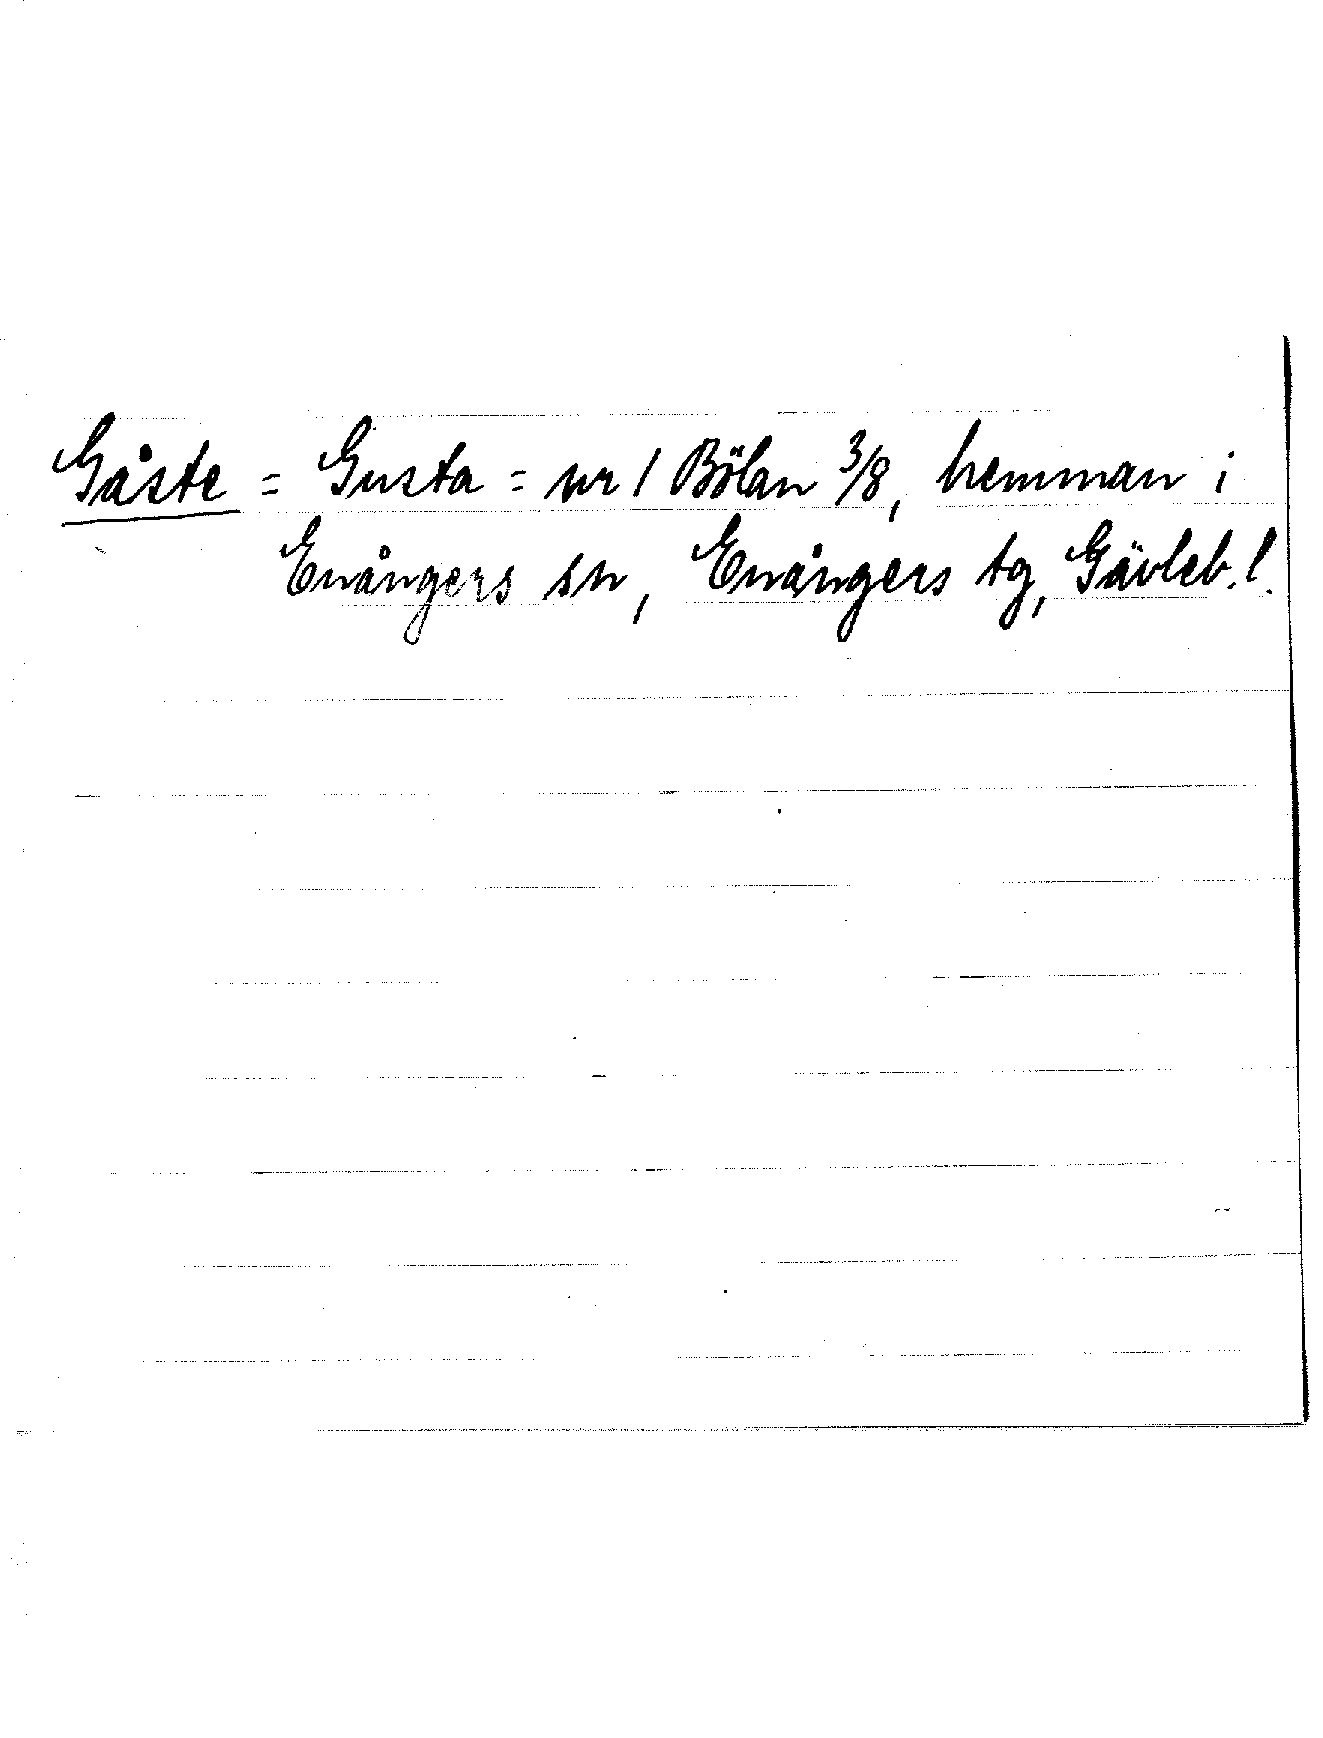 Gåste = Gusta = nr 1 Bölan 3/8, hemman i
Enångers sn, Enångers tg, Gävleb. l.